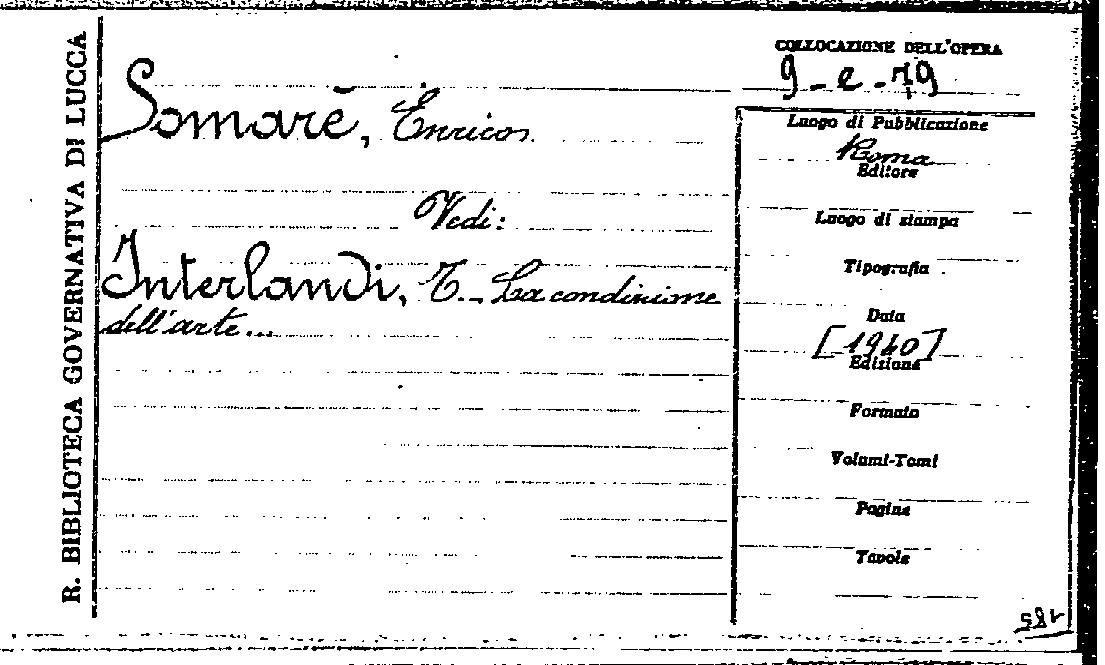 R. BIBLIOTECA GOVERNATIVA DI LUCCA
Somarè, Enrico.
Vedi:
Interlandi, T. - La condizione
dell'arte...
COLLOCAZIONE DELL'OPERA
9 - e - 79
Luogo di Pubblicazione
Roma
Editore
Luogo di stampa
Tipografia
Data
[1940]
Edizione
Formato
Volumi-Tomi
Pagine
Tavole